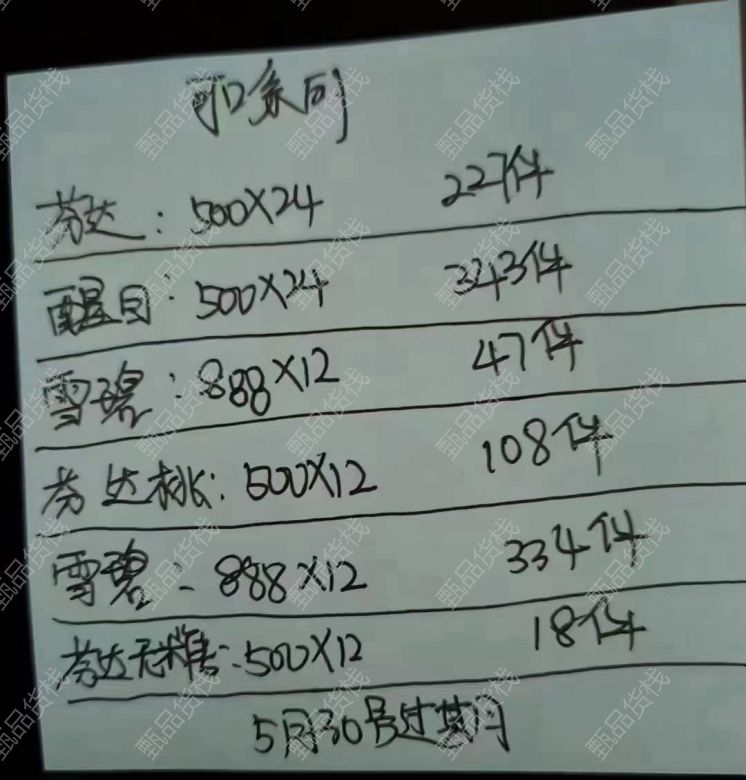 可口系列
芬达：500X24 227件
醒目：500X24 343件
雪碧：888X12 47件
芬达桃：500X12 108件
雪碧：888X12 334件
芬达无糖：500X12 18件
5月30号过其月
甄品货栈